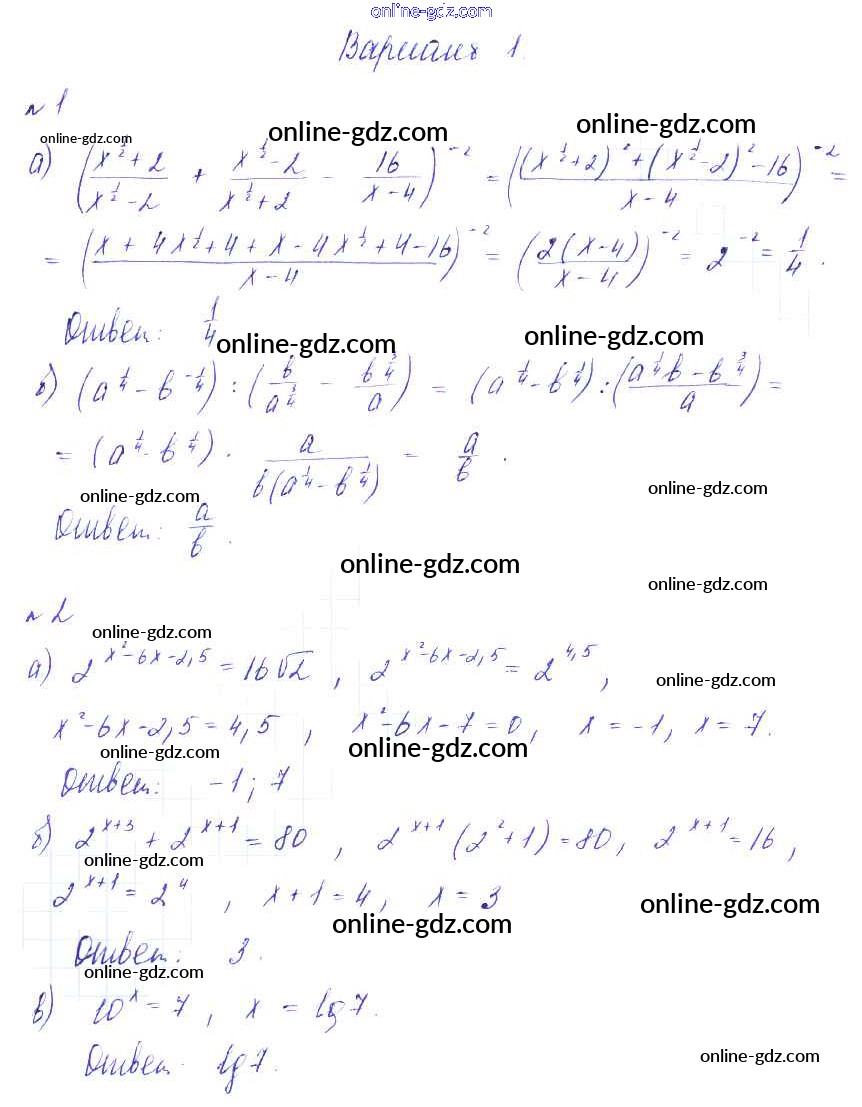 online-gdz.com
Вариант 1.
№1
online-gdz.com online-gdz.com online-gdz.com
а) ((x^(1/2)+2)/(x^(1/2)-2) + (x^(1/2)-2)/(x^(1/2)+2) - 16/(x-4))^(-2) = (((x^(1/2)+2)^2+(x^(1/2)-2)^2-16)/(x-4))^(-2) =
= ((x+4x^(1/2)+4+x-4x^(1/2)+4-16)/(x-4))^(-2) = (2(x-4)/(x-4))^(-2) = 2^(-2) = 1/4.
Ответ: 1/4
online-gdz.com online-gdz.com
б) (a^(1/4)-b^(-1/4)) : (b/a^(3/4) - b^(3/4)/a) = (a^(1/4)-b^(1/4)) : ((a^(1/4)b-b^(3/4))/a) =
= (a^(1/4)-b^(1/4)) · a/(b(a^(1/4)-b^(1/4))) = a/b.
online-gdz.com online-gdz.com
Ответ: a/b.
online-gdz.com online-gdz.com
№2
online-gdz.com
а) 2^(x^2-6x-2,5) = 16√2, 2^(x^2-6x-2,5) = 2^(4,5),
online-gdz.com
x^2-6x-2,5=4,5, x^2-6x-7=0, x=-1, x=7.
online-gdz.com online-gdz.com
Ответ: -1; 7
б) 2^(x+3) + 2^(x+1) = 80, 2^(x+1)(2^2+1)=80, 2^(x+1)=16,
online-gdz.com
2^(x+1) = 2^4, x+1=4, x=3
online-gdz.com online-gdz.com
Ответ: 3.
online-gdz.com
в) 10^x = 7, x = lg7.
Ответ. lg7.
online-gdz.com